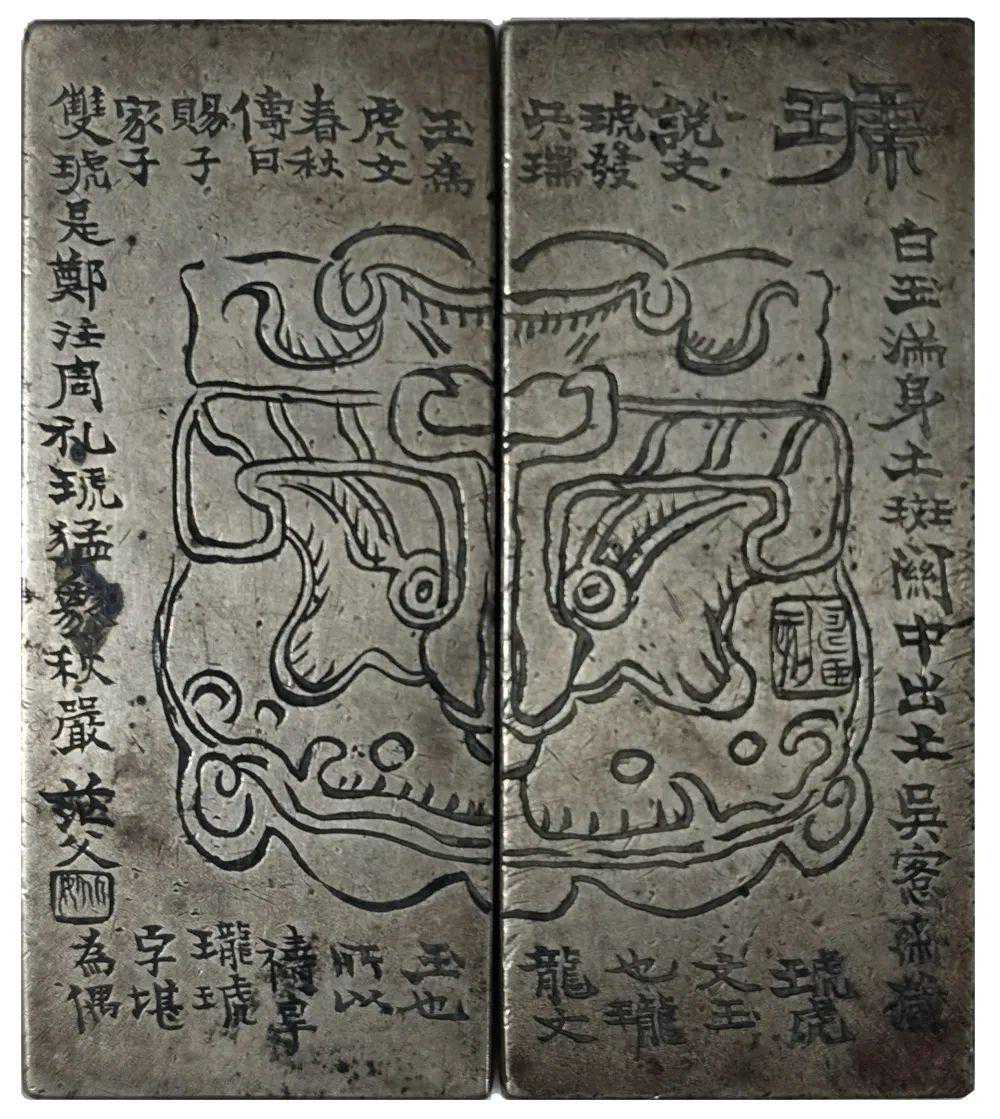 琥
白玉滿身土斑關中出土吳愙齋藏
説文
琥發
兵瑞
玉為
虎文
春秋
傳曰
賜子
家子
雙琥是鄭注周礼琥猛象秋嚴
茫父
琥虎
文玉
也瓏
龍文
玉也
所以
禱旱
瓏琥
字堪
為偶